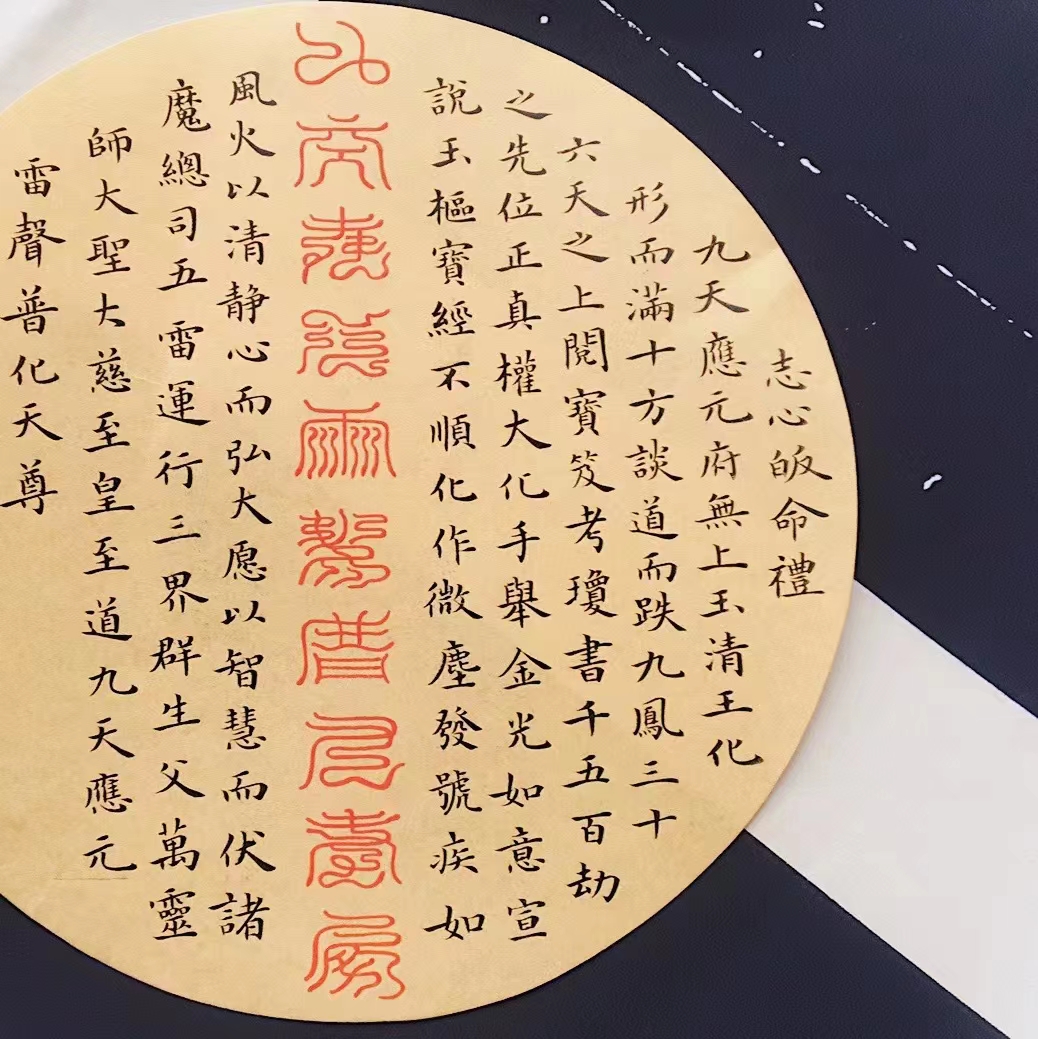 志心皈命禮
九天應元府無上玉清王化
形而滿十方談道而跌九鳳三十
六天之上閱寶笈考瓊書千五百劫
之先位正真權大化手舉金光如意宣
說玉樞寶經不順化作微塵發號疾如
風火以清静心而弘大愿以智慧而伏諸
魔總司五雷運行三界群生父萬靈
師大聖大慈至皇至道九天應元
雷聲普化天尊